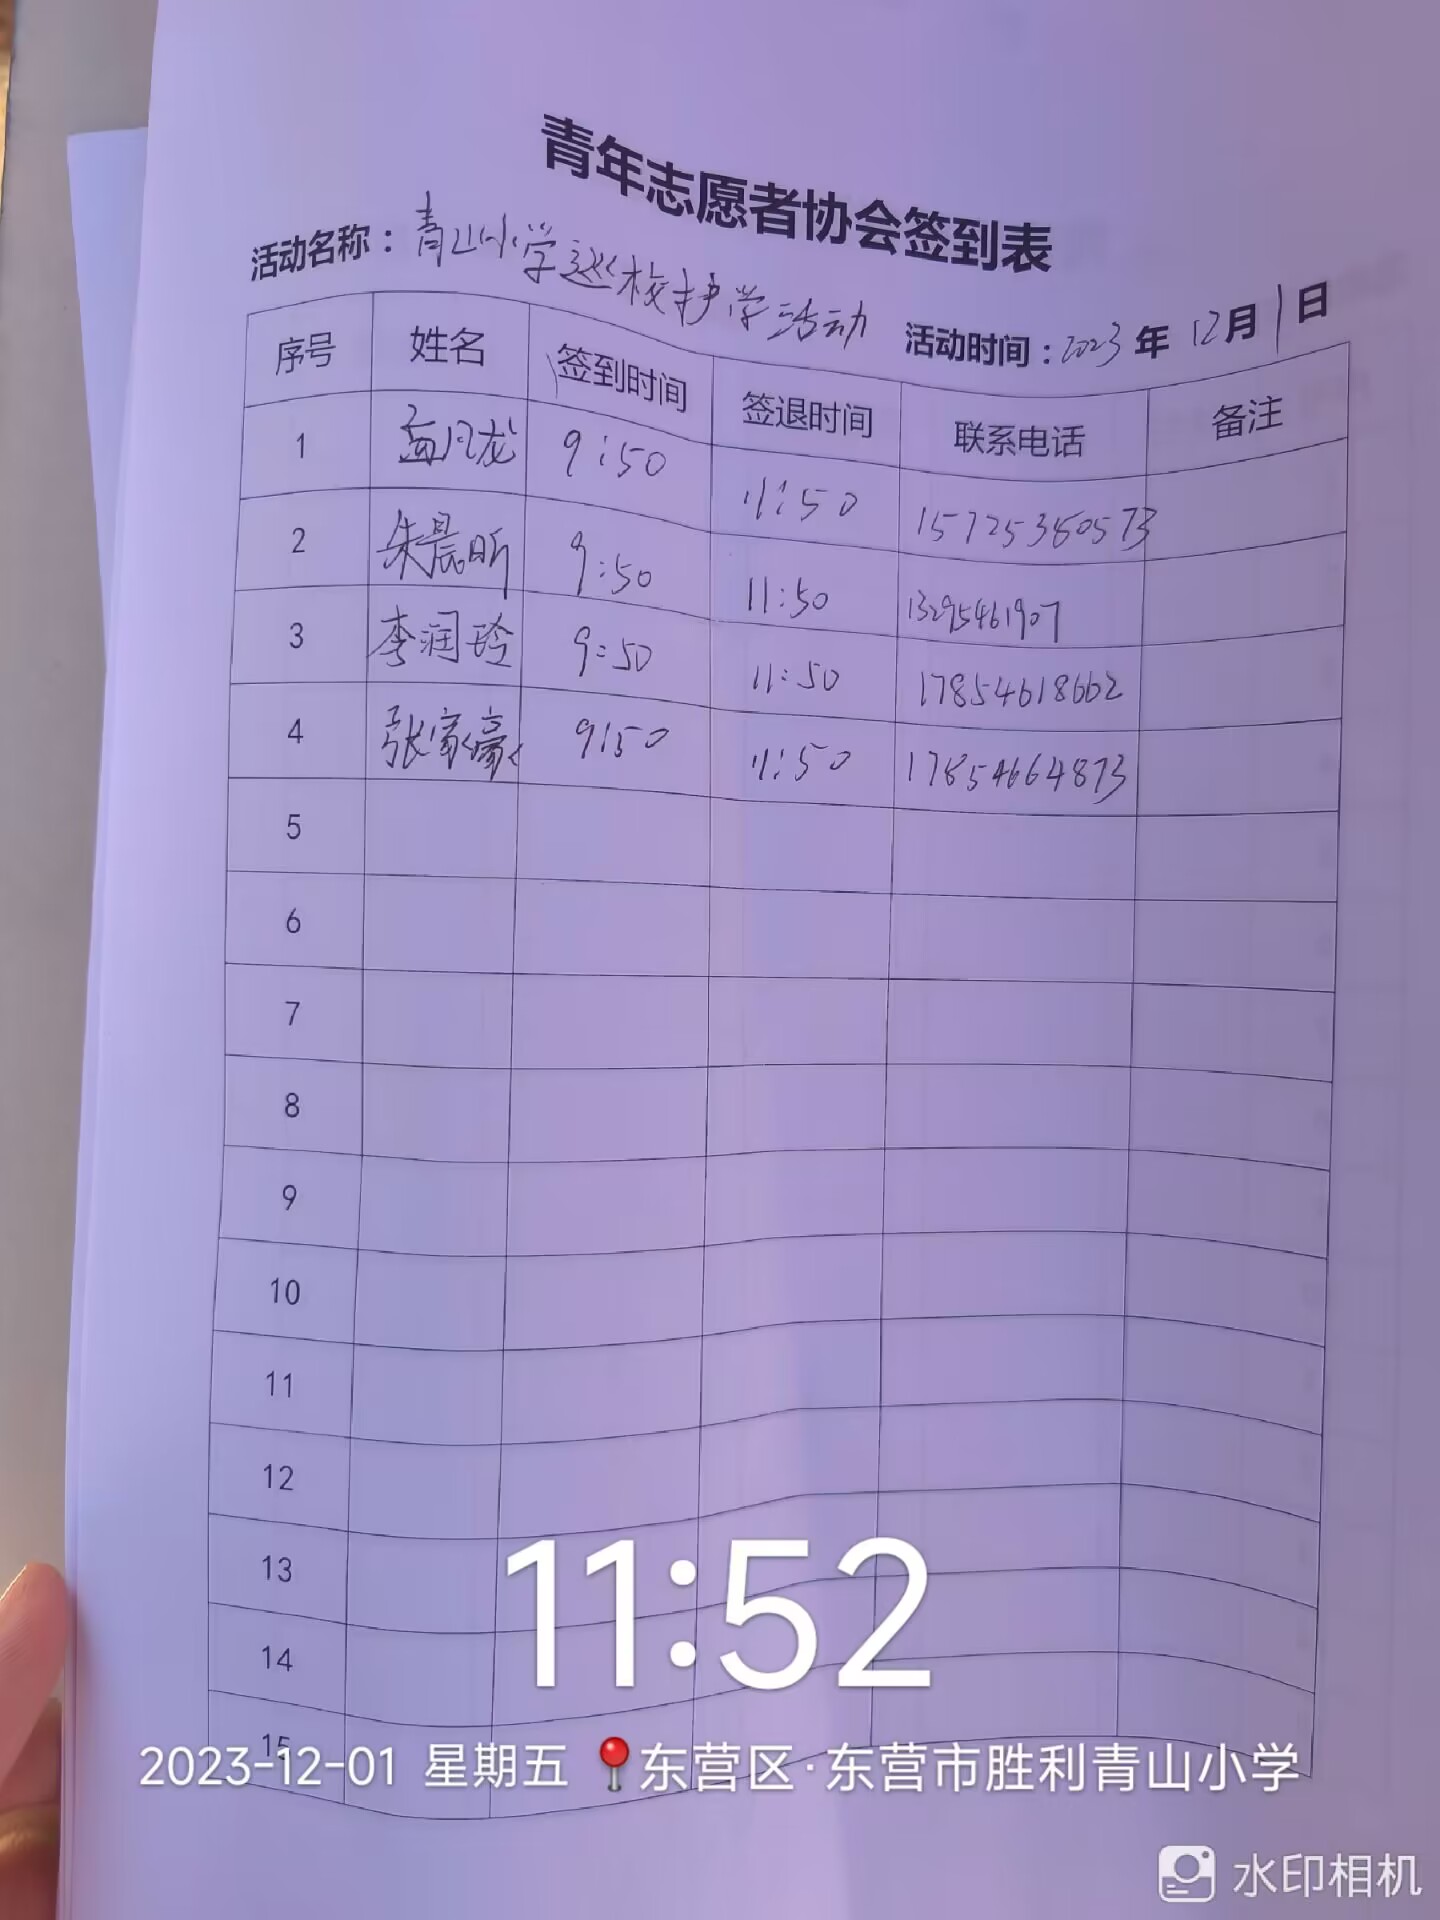 青年志愿者协会签到表
活动名称：青山小学巡校护学活动 活动时间：2023年12月1日
序号 姓名 签到时间 签退时间 联系电话 备注
1 孟凡龙 9:50 11:50 15725360573
2 朱晨昕 9:50 11:50 13295461907
3 李润玲 9:50 11:50 17854618662
4 张家豪 9:50 11:50 17854664873
5
6
7
8
9
10
11
12
13
14
15
11:52
2023-12-01 星期五 东营区·东营市胜利青山小学
水印相机